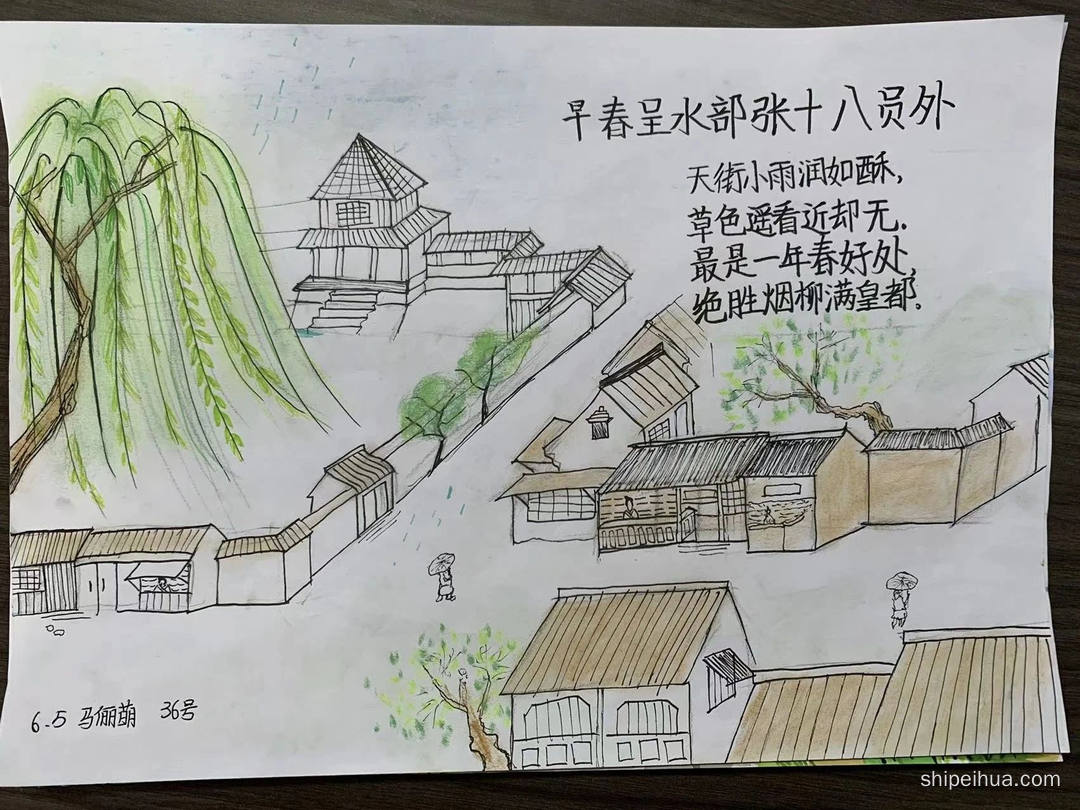 早春呈水部张十八员外
天街小雨润如酥,
草色遥看近却无.
最是一年春好处,
绝胜烟柳满皇都.
6.5 马俪萌 36号
shipeihua.com